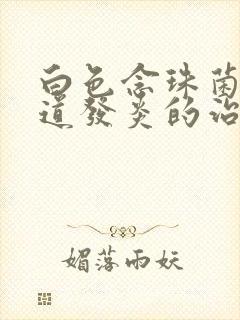 白色念珠菌
道發炎的治
媚落雨妖